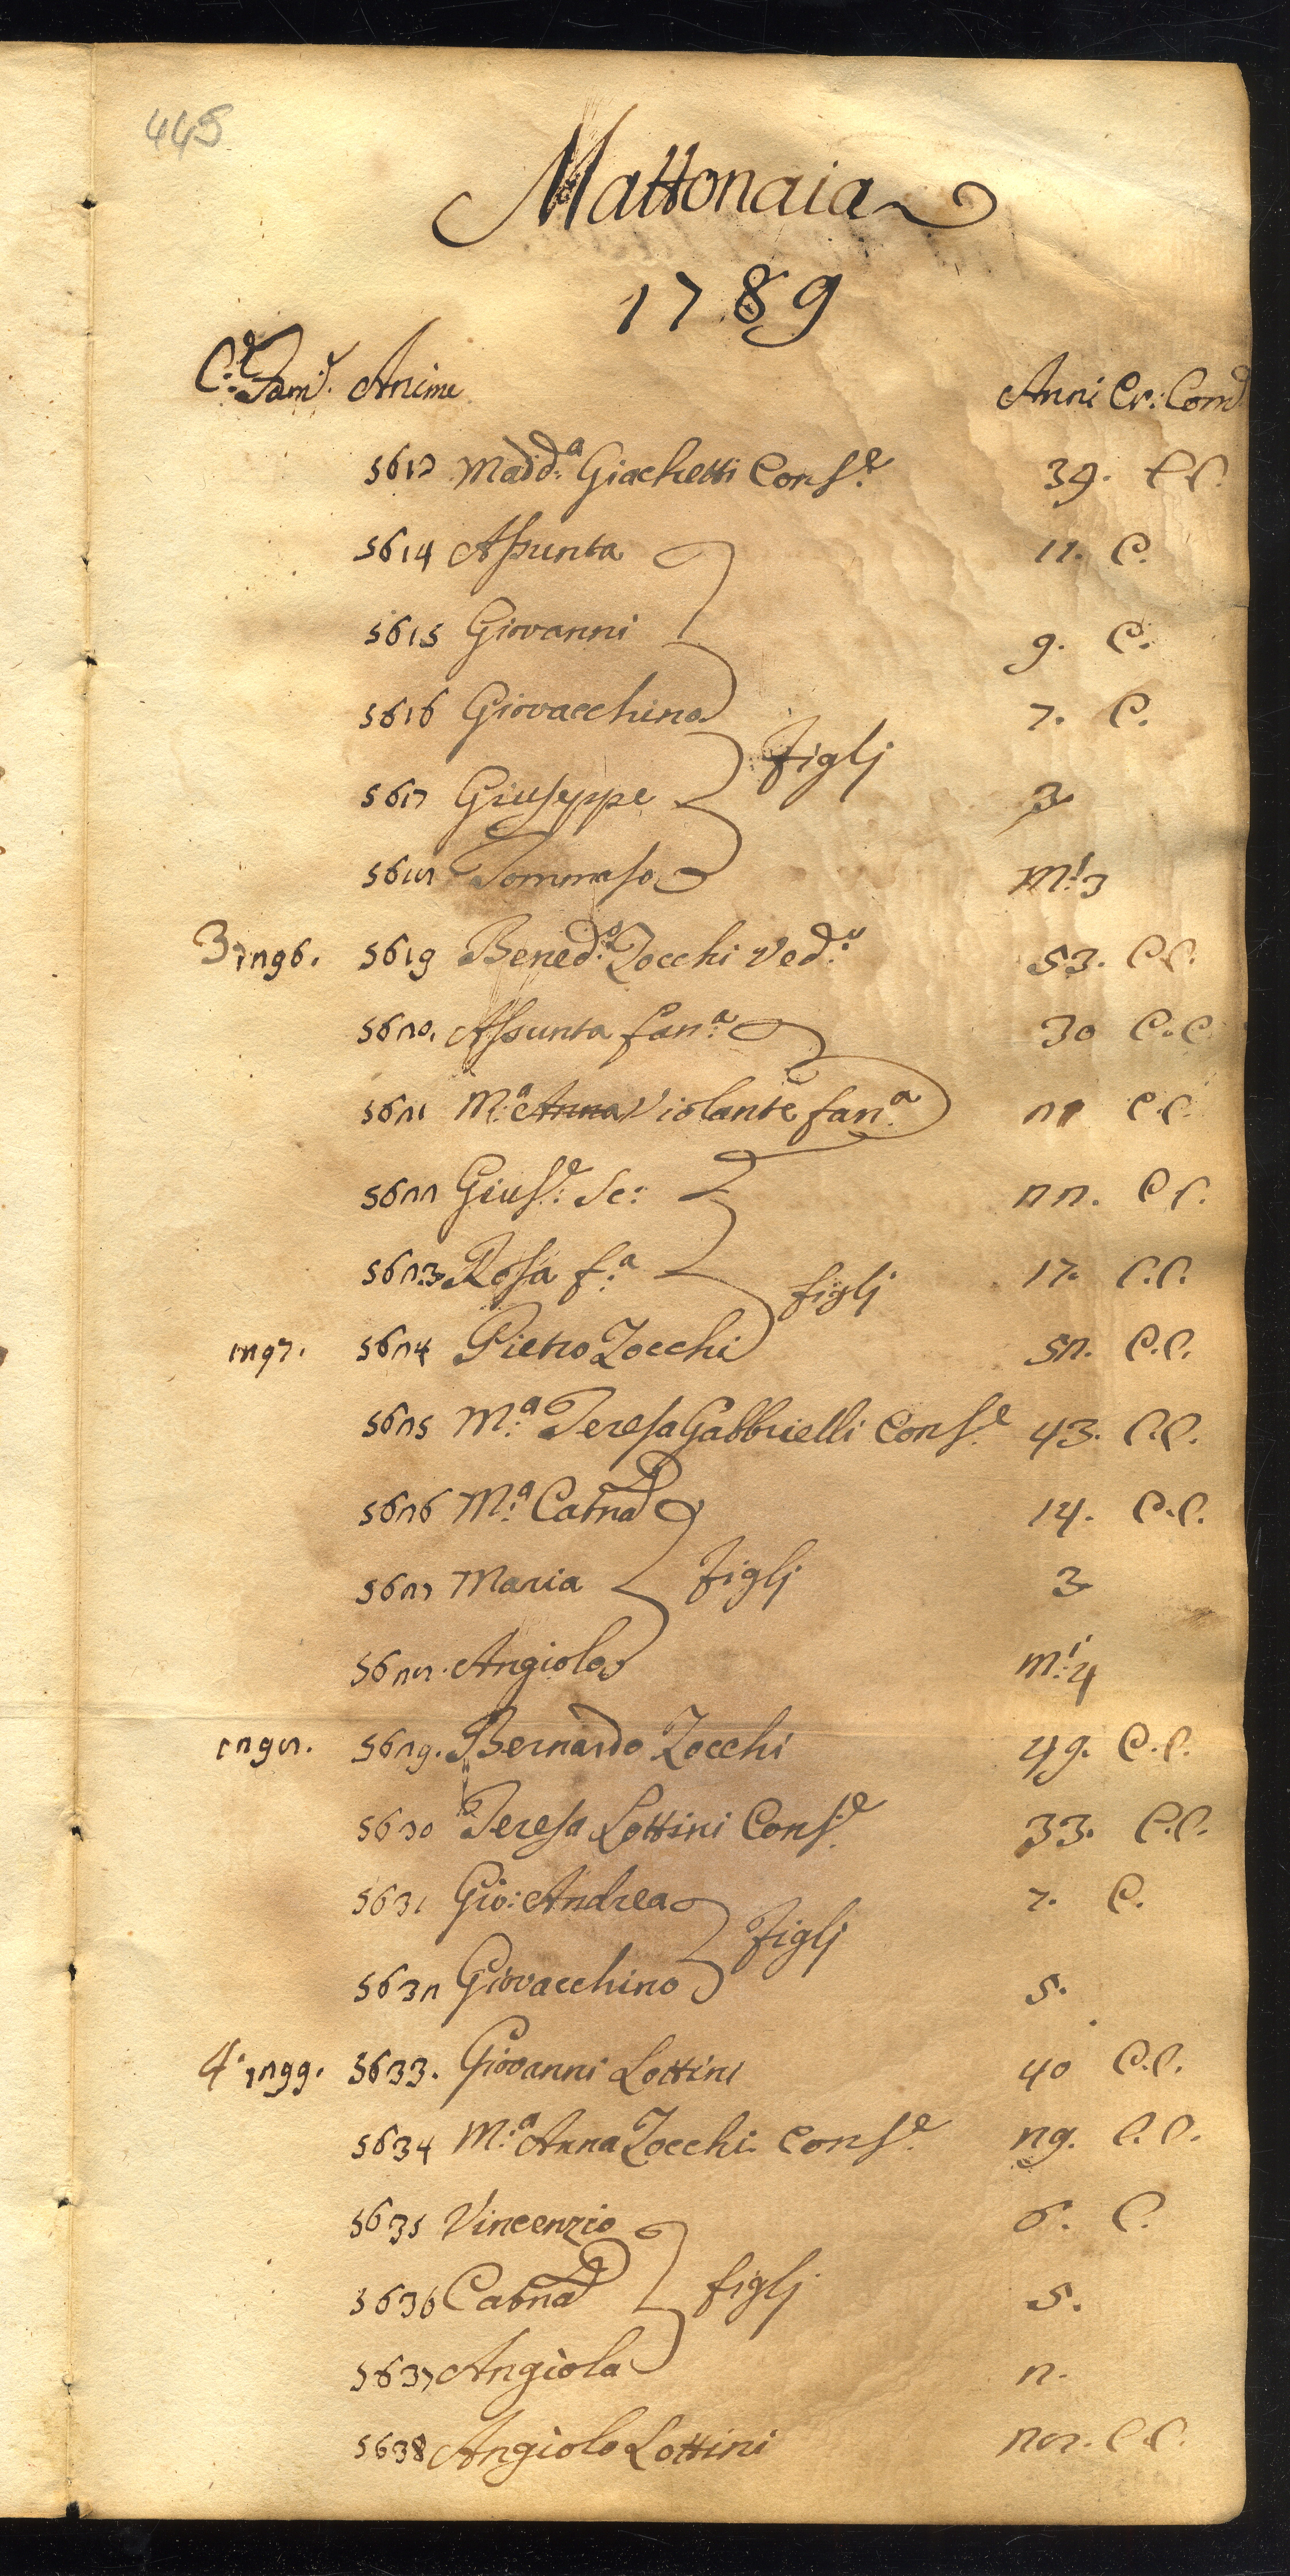 445
Mattonaia
1789
C.e Fam.e Anime Anni Cr: Com.e
5613 Madd.a Giachetti Cons.e 39. C C.
5614 Assunta 11. C.
5615 Giovanni 9. C.
5616 Giovacchino 7. C.
figlj
5617 Giuseppe 3
5618 Tommaso m.i 3
3 1296. 5619 Bened.o Zocchi Ved.o 53. C C.
5620. Assunta fan.a 30 C. C
5621 M.a Anna Violante fan.a 21 C. C.
5622 Gius.e Sc: 22. C C.
5623 Rosa f.a 17. C. C.
figlj
1297. 5624 Pietro Zocchi 52. C. C.
5625 M.a Teresa Gabbrielli Cons.e 43. C. C.
5626 M.a Catna 14. C. C.
5627 Maria figlj 3
5628. Angiolo m.i 4
1298. 5629. Bernardo Zocchi 49. C. C.
5630 Teresa Lottini Cons.e 33. C. C.
5631 Gio: Andrea 7. C.
figlj
5632 Giovacchino 5.
4. 1299. 5633. Giovanni Lottini 40 C. C.
5634 M.a Anna Zocchi Cons.e 29. C. C.
5635 Vincenzio 6. C.
5636 Catna figlj 5.
5637 Angiola 2.
5638 Angiolo Lottini 28. C C.